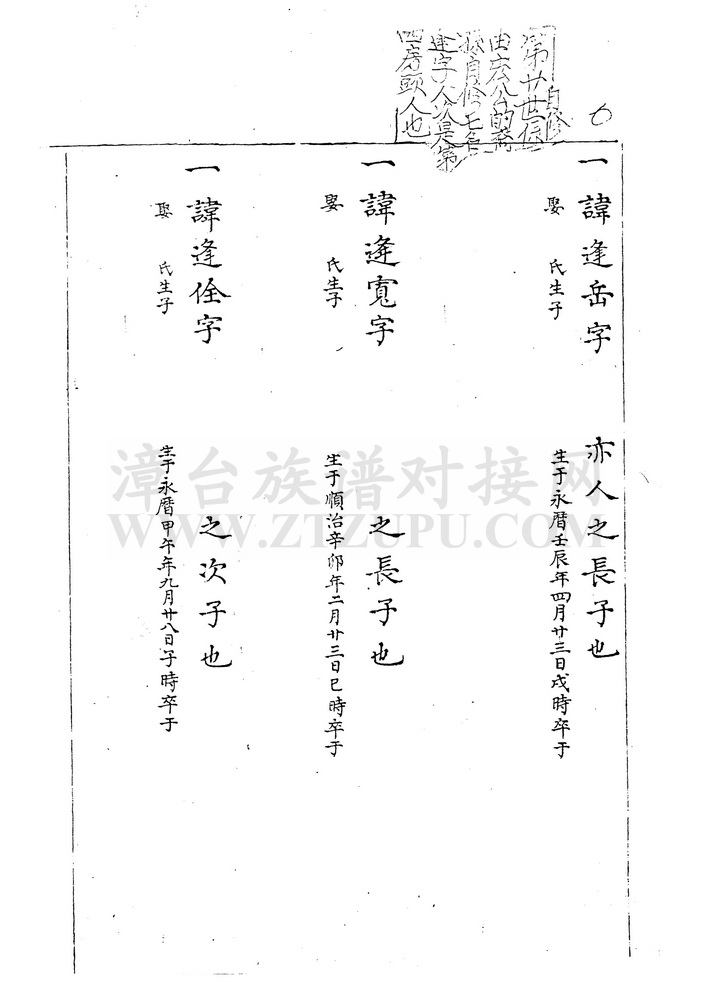 6
第廿世係
自修
由宏公的裔
孫自修工名
逢字人次是第
四房頭人也
一諱逢岳字 亦人之長子也
娶 氏生子 生于永曆壬辰年四月廿三日戌時卒于
一諱逢寬字 之長子也
娶 氏生子 生于順治辛卯年二月廿三日巳時卒于
一諱逢佺字 之次子也
娶 氏生子 生于永曆甲午年九月廿八日子時卒于
漳台族谱对接网
WWW.ZTZUPU.COM